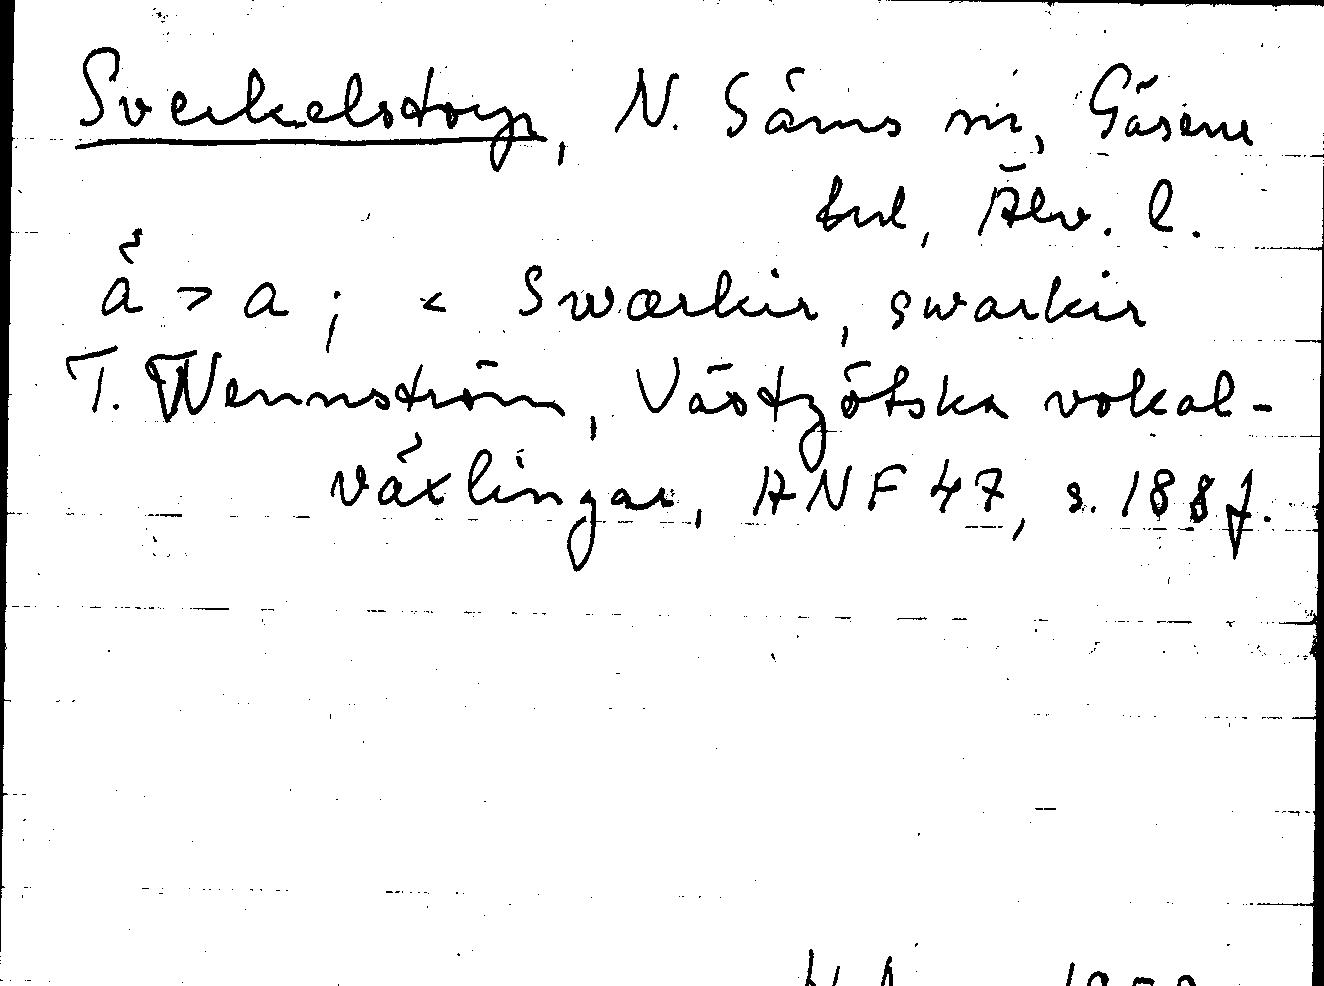 Sverkelstorp, N. Säms sn, Gäsene
hd, Älv. l.
ä > a ; < Swærkir, swarkir
T. Wennström, Västgötska vokal-
växlingar, ANF 47, s. 188 f.